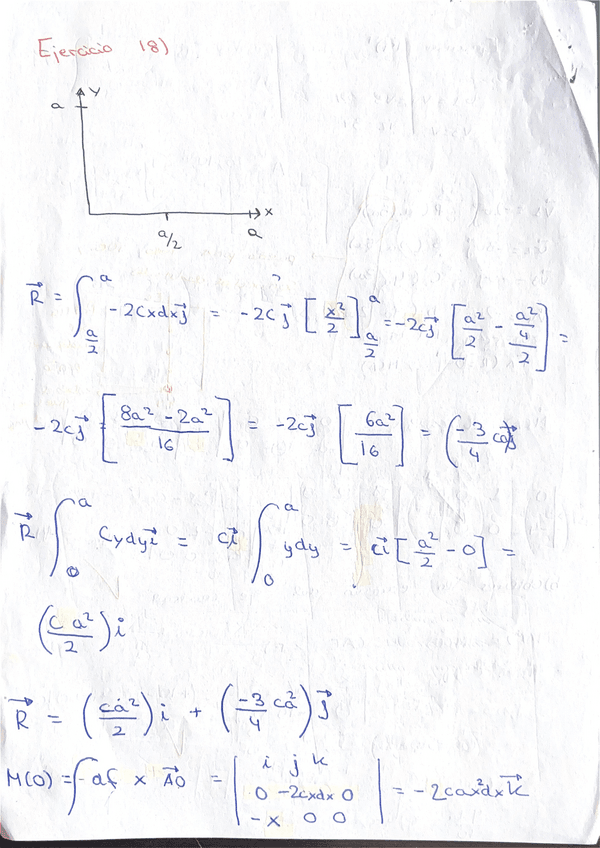 Ejercicio 18)
a y
x
a/2 a
R⃗ = ∫_{a/2}^{a} -2cxdxj⃗ = -2cj⃗ [x²/2]_{a/2}^{a} = -2cj⃗ [a²/2 - (a²/4)/2] =
-2cj⃗ = [(8a² - 2a²)/16] = -2cj⃗ [6a²/16] = (-3/4 ca²)j⃗
R⃗ ∫_{0}^{a} Cydyi⃗ = ci⃗ ∫_{0}^{a} ydy = ci⃗ [a²/2 - 0] =
(c a²/2) i
R⃗ = (ca²/2) i + (-3/4 ca²) j⃗
M(0) = ∫ df × A⃗O = | i j k
0 -2cxdx 0
-x 0 0 | = -2cax²dx k⃗